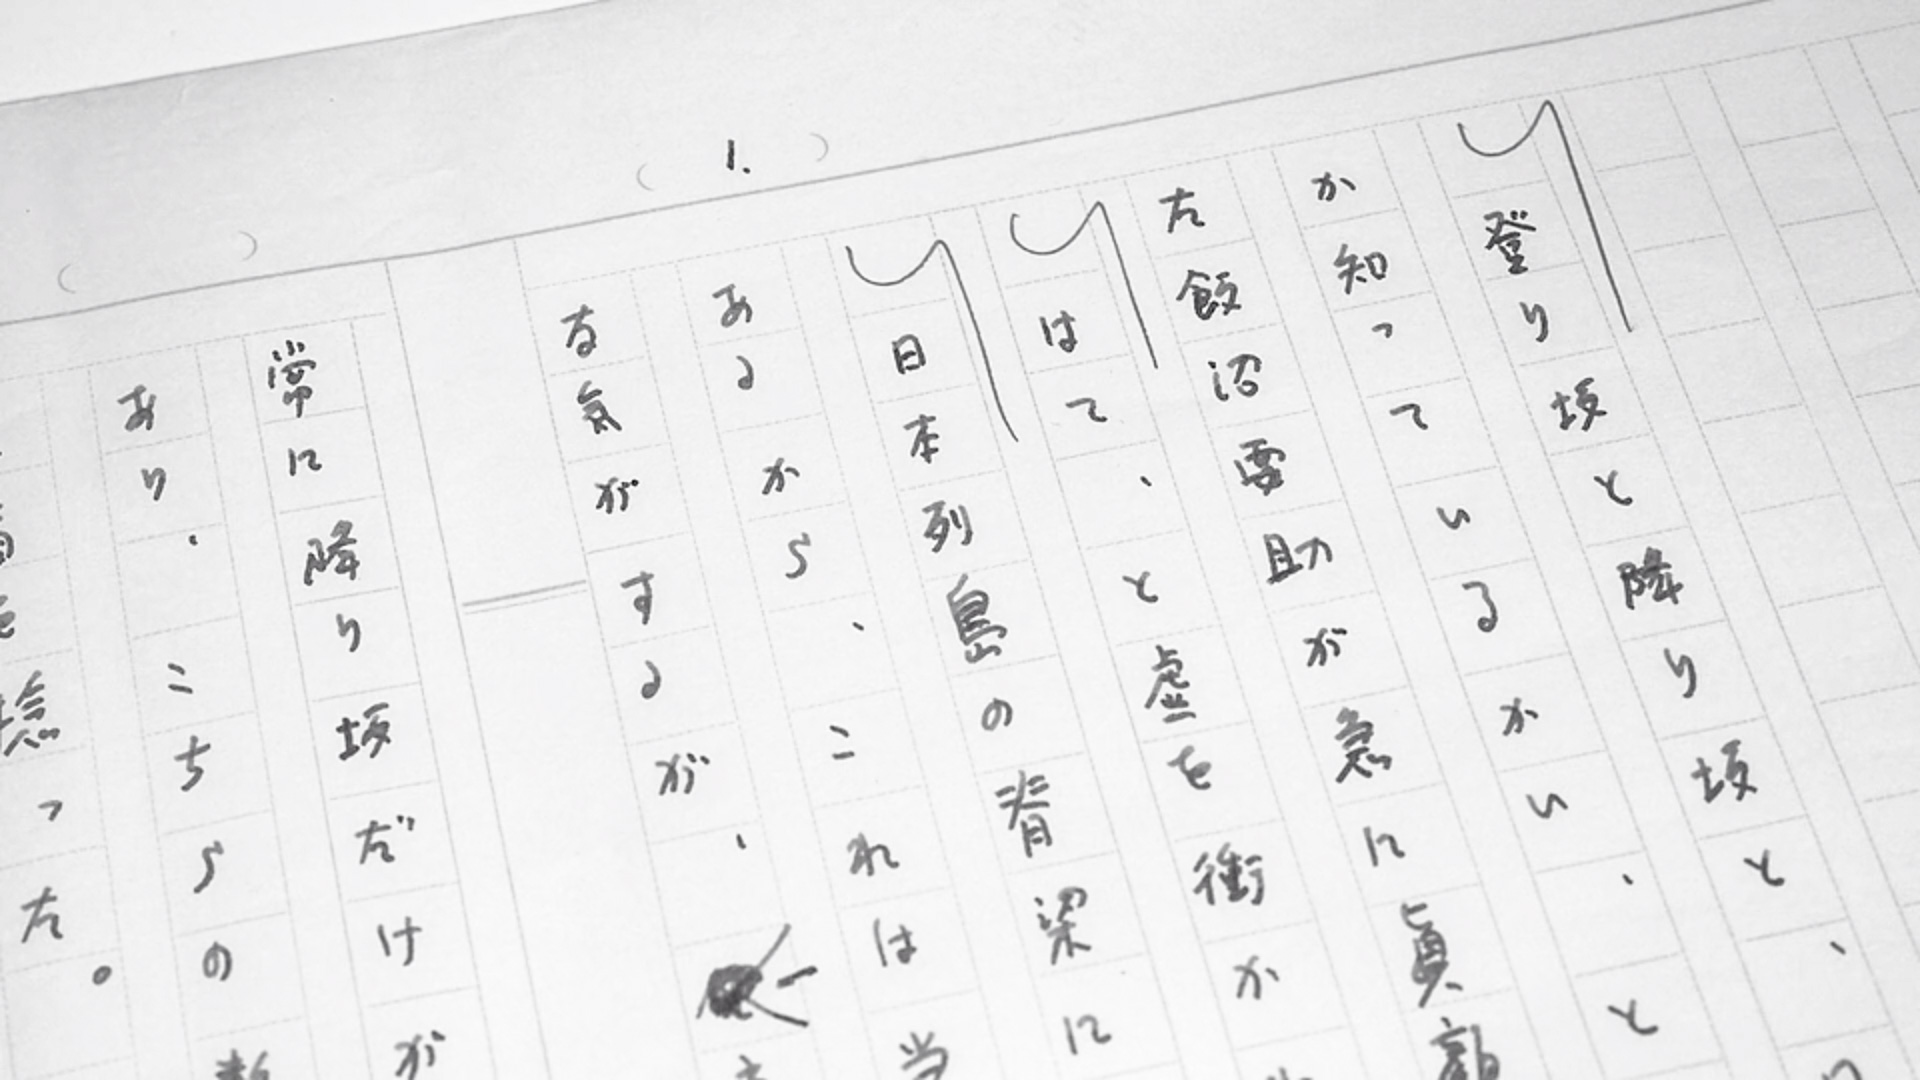 1.
登り坂と降り坂と、
か知っているかい、と
た飯沼要助が急に真顔
はて、と虚を衝か
日本列島の脊梁に
あるから、これは当
な気がするが、
常に降り坂だけが
あり、こちらの
った。